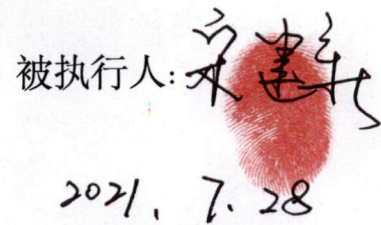 被执行人:宋建新
2021. 7. 28